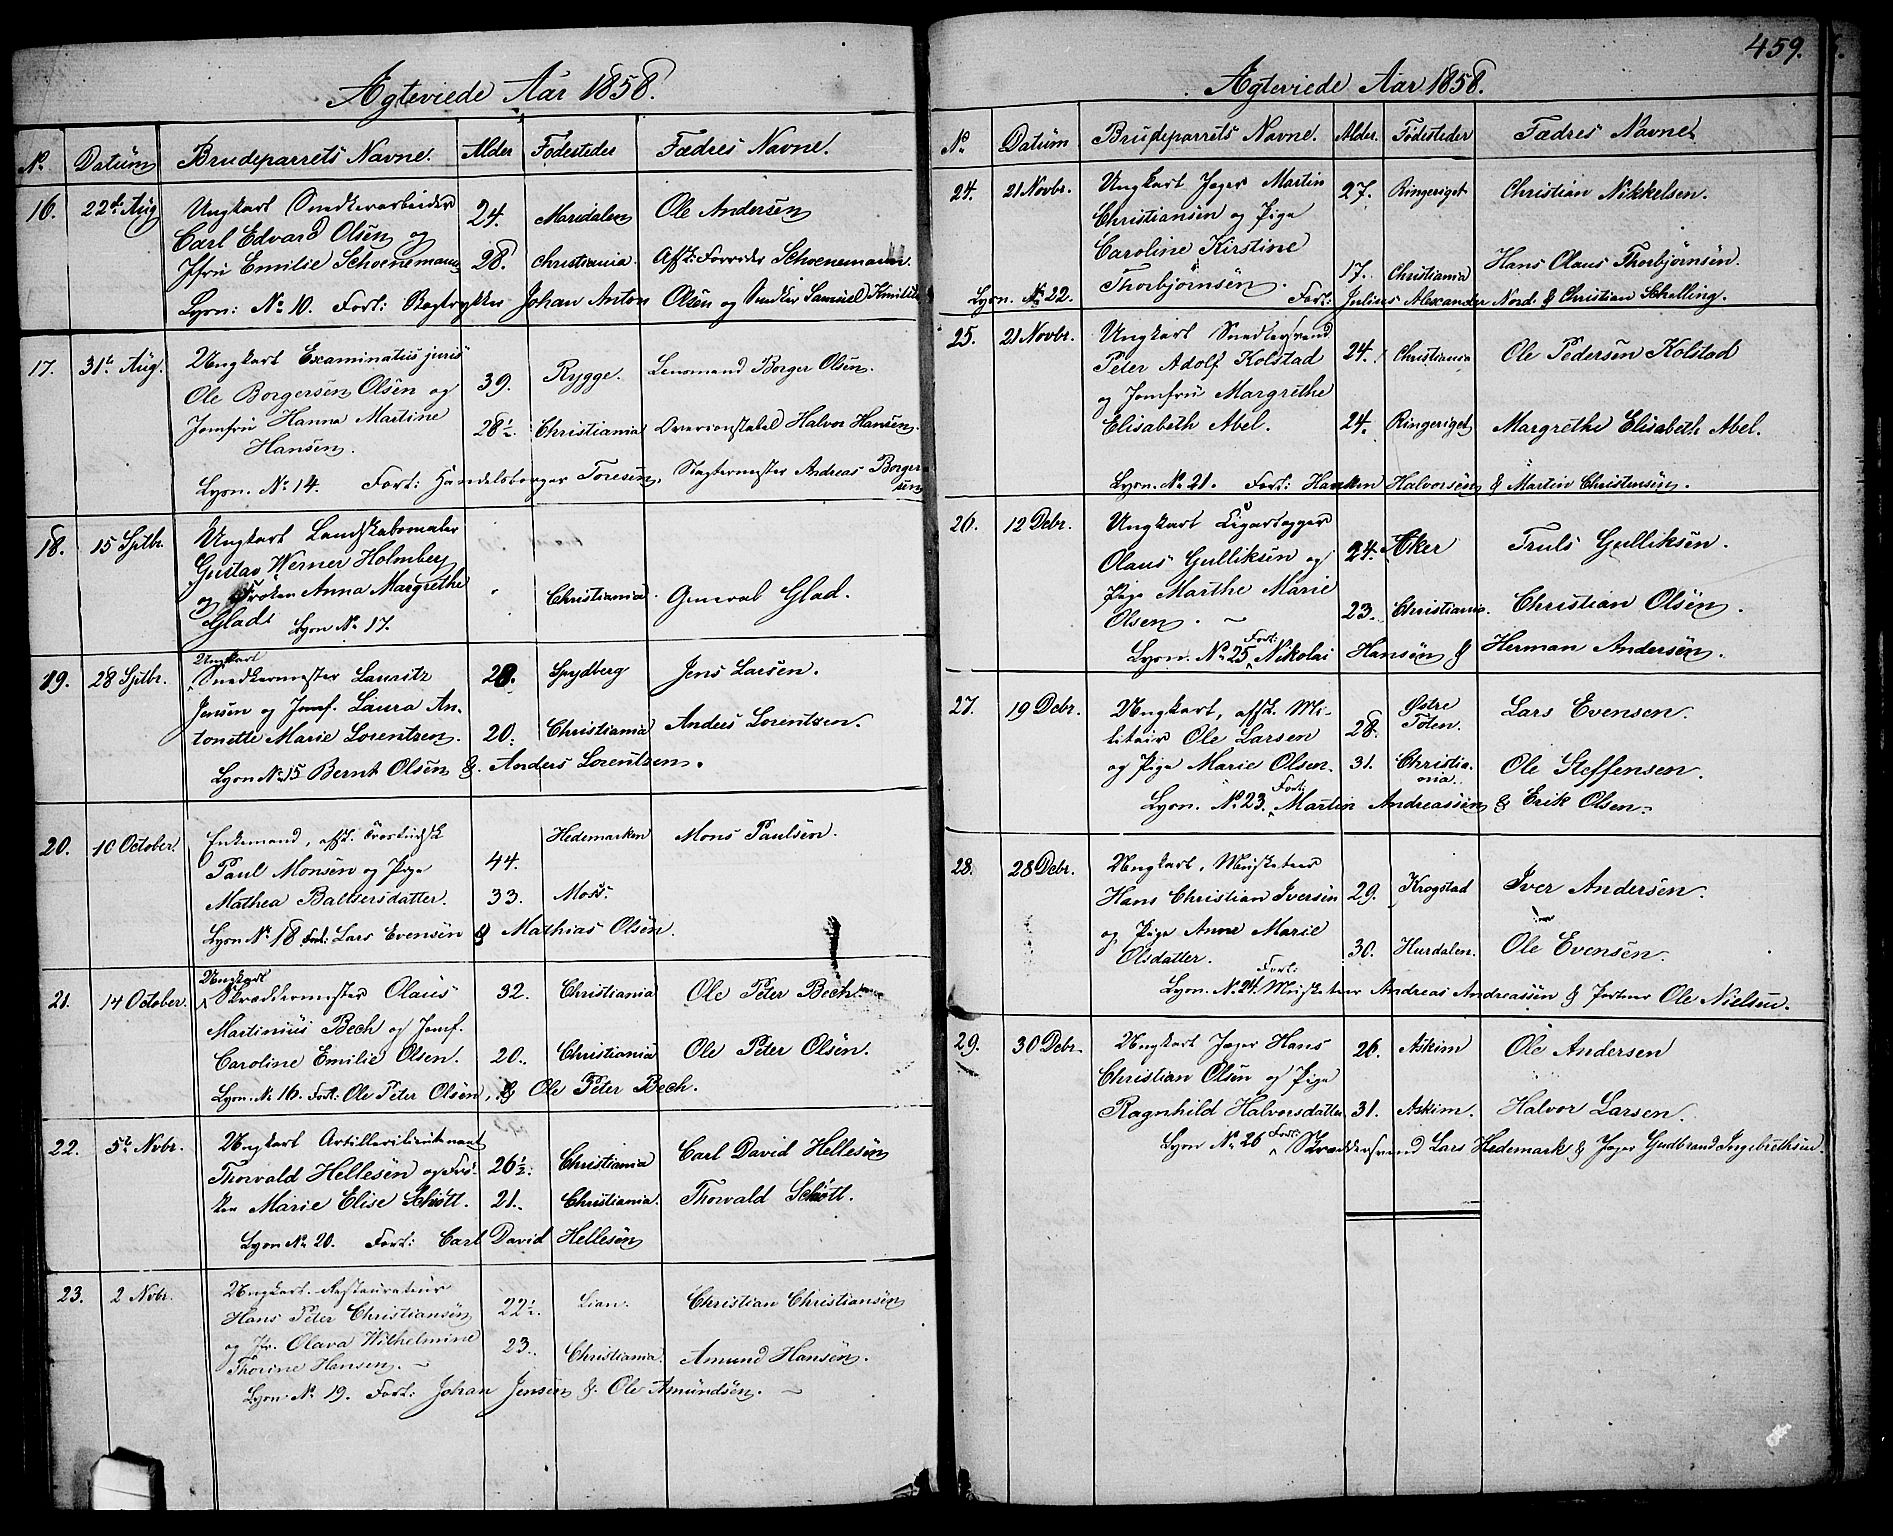 Ægteviede Aar 1858.
No. Datum Brudeparrets Navne. Alder Fødesteder Fædres Navne.
16. 22de Aug Ungkarl Snedkerarbeider 24. Maridalen Ole Andersen
Carl Edvard Olsen og
Jfru Emilie Schoenemann 28. Christiania. Afsk: Schoenemann.
Lysn: No 10. Forl: Bogtrykker Johan Anton Olsen og Snedker Samuel
17. 31te Aug. Ungkarl Examinatus juris
Ole Borgersen Olsen og 39. Rygge. Lensmand Borger Olsen.
Jomfru Hanna Martine 28½ Christiania Halvor Hansen.
Hansen.
Lysn. No 14. Forl: Handelsborger Toresen, Slagtermester Andreas Borger
sen
18. 15 Sptbr. Ungkarl Landskabsmaler
Gustav Werner Holmberg
og Frøken Anna Margrethe Christiania. General Glad.
Glad. Lysn No 17.
Ungkarl
19. 28 Sptbr. Snedkermester Lauritz 28. Spydberg Jens Larsen.
Jensen og Jomf. Laura An-
tonette Marie Lorentzen. 20. Christiania Anders Lorentzen.
Lysn No 15 Bernt Olsen & Anders Lorentzen.
20. 10 October. Enkemand, afsk. Hedemarken Mons Paulsen.
Paul Monsen og Pige 44.
Mathea Baltsersdatter. 33. Moss.
Lysn No 18 Forl: Lars Evensen & Mathias Olsen.
Ungkarl
21. 14 October. Skræddermester Olaus 32. Christiania Ole Peter Bech.
Martinius Bech og Jomf.
Caroline Emilie Olsen. 20. Christiania Ole Peter Olsen.
Lysn. No 16. Forl: Ole Peter Olsen, & Ole Peter Bech.
22. 5te Nvbr. Ungkarl Artillerilieutenant
Thorvald Hellesen og Frø- 26½. Christiania Carl David Hellesen
ken Marie Elise Schøtt. 21. Christiania. Thorvald Schøtt.
Lysn No 20. Forl: Carl David Hellesen
23. 2 Nvbr. Ungkarl Restaurateur
Hans Peter Christiansen 22½. Lian. Christian Christiansen
og Jfr. Olava Wilhelmine 23. Christiania. Amund Hansen.
Thorine Hansen.
Lysn. No 19. Forl: Johan Jensen & Ole Amundsen.
459.
Ægteviede Aar 1858.
No Datum Brudeparrets Navne. Alder. Fødesteder Fædres Navne
24. 21 Novbr. Ungkarl Jæger Martin 27. Ringeriget Christian Nikkelsen.
Christiansen og Pige
Caroline Kirstine
Thorbjørnsen. 17. Christiania Hans Claus Thorbjørnsen.
Lysn. No 22. Forl: Julius Alexander Nord. & Christian Schelling.
25. 21 Novbr. Ungkarl Snedkersvend
Peter Adolf Kolstad 24. Christiania Ole Pedersen Kolstad
og Jomfru Margrethe
Elisabeth Abel. 24. Ringeriget Margrethe Elisabeth Abel.
Lysn. No 21. Forl: Halvorsen & Martin Christensen.
26. 12 Debr. Ungkarl
Olaus Gulliksen og 24. Aker Truls Gulliksen.
Pige Marthe Marie
Olsen. 23. Christiania. Christian Olsen.
Lysn. No 25 Forl: Nikolai Hansen & Herman Andersen.
27. 19 Debr. Ungkarl, afsk. Mi- Østre Lars Evensen.
litair Ole Larsen 28. Toten.
og Pige Marie Olsen. 31. Christia- Ole Steffensen.
nia.
Lysn. No 23. Forl: Martin Andreassen & Erik Olsen.
28. 28 Debr. Ungkarl, Musketeer
Hans Christian Iversen 29. Krogstad Iver Andersen.
og Pige Anne Marie
Olsdatter. 30. Hurdalen. Ole Evensen.
Lysn. No 24. Forl: Musketeer Andreas Andreassen & Ole Nielsen.
29. 30 Debr. Ungkarl Jæger Hans 26. Askim Ole Andersen
Christian Olsen og Pige
Ragnhild Halvorsdatter 31. Askim. Halvor Larsen.
Lysn No 26 Forl: Skræddersvend Lars Hedemark & Jæger Gudbrand Ingebrethsen.